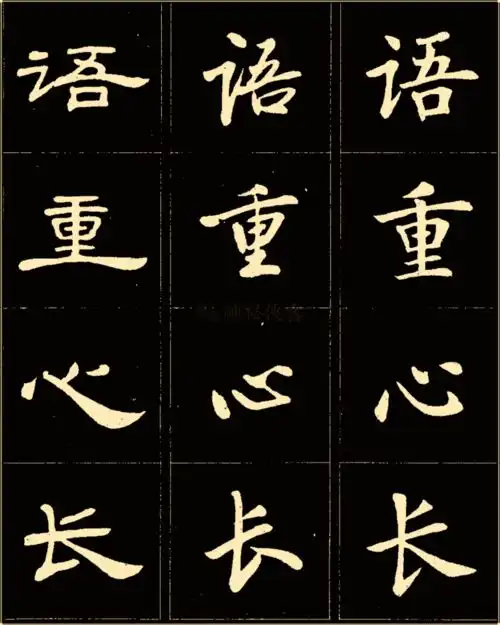 语 语 语
重 重 重
心 心 心
长 长 长